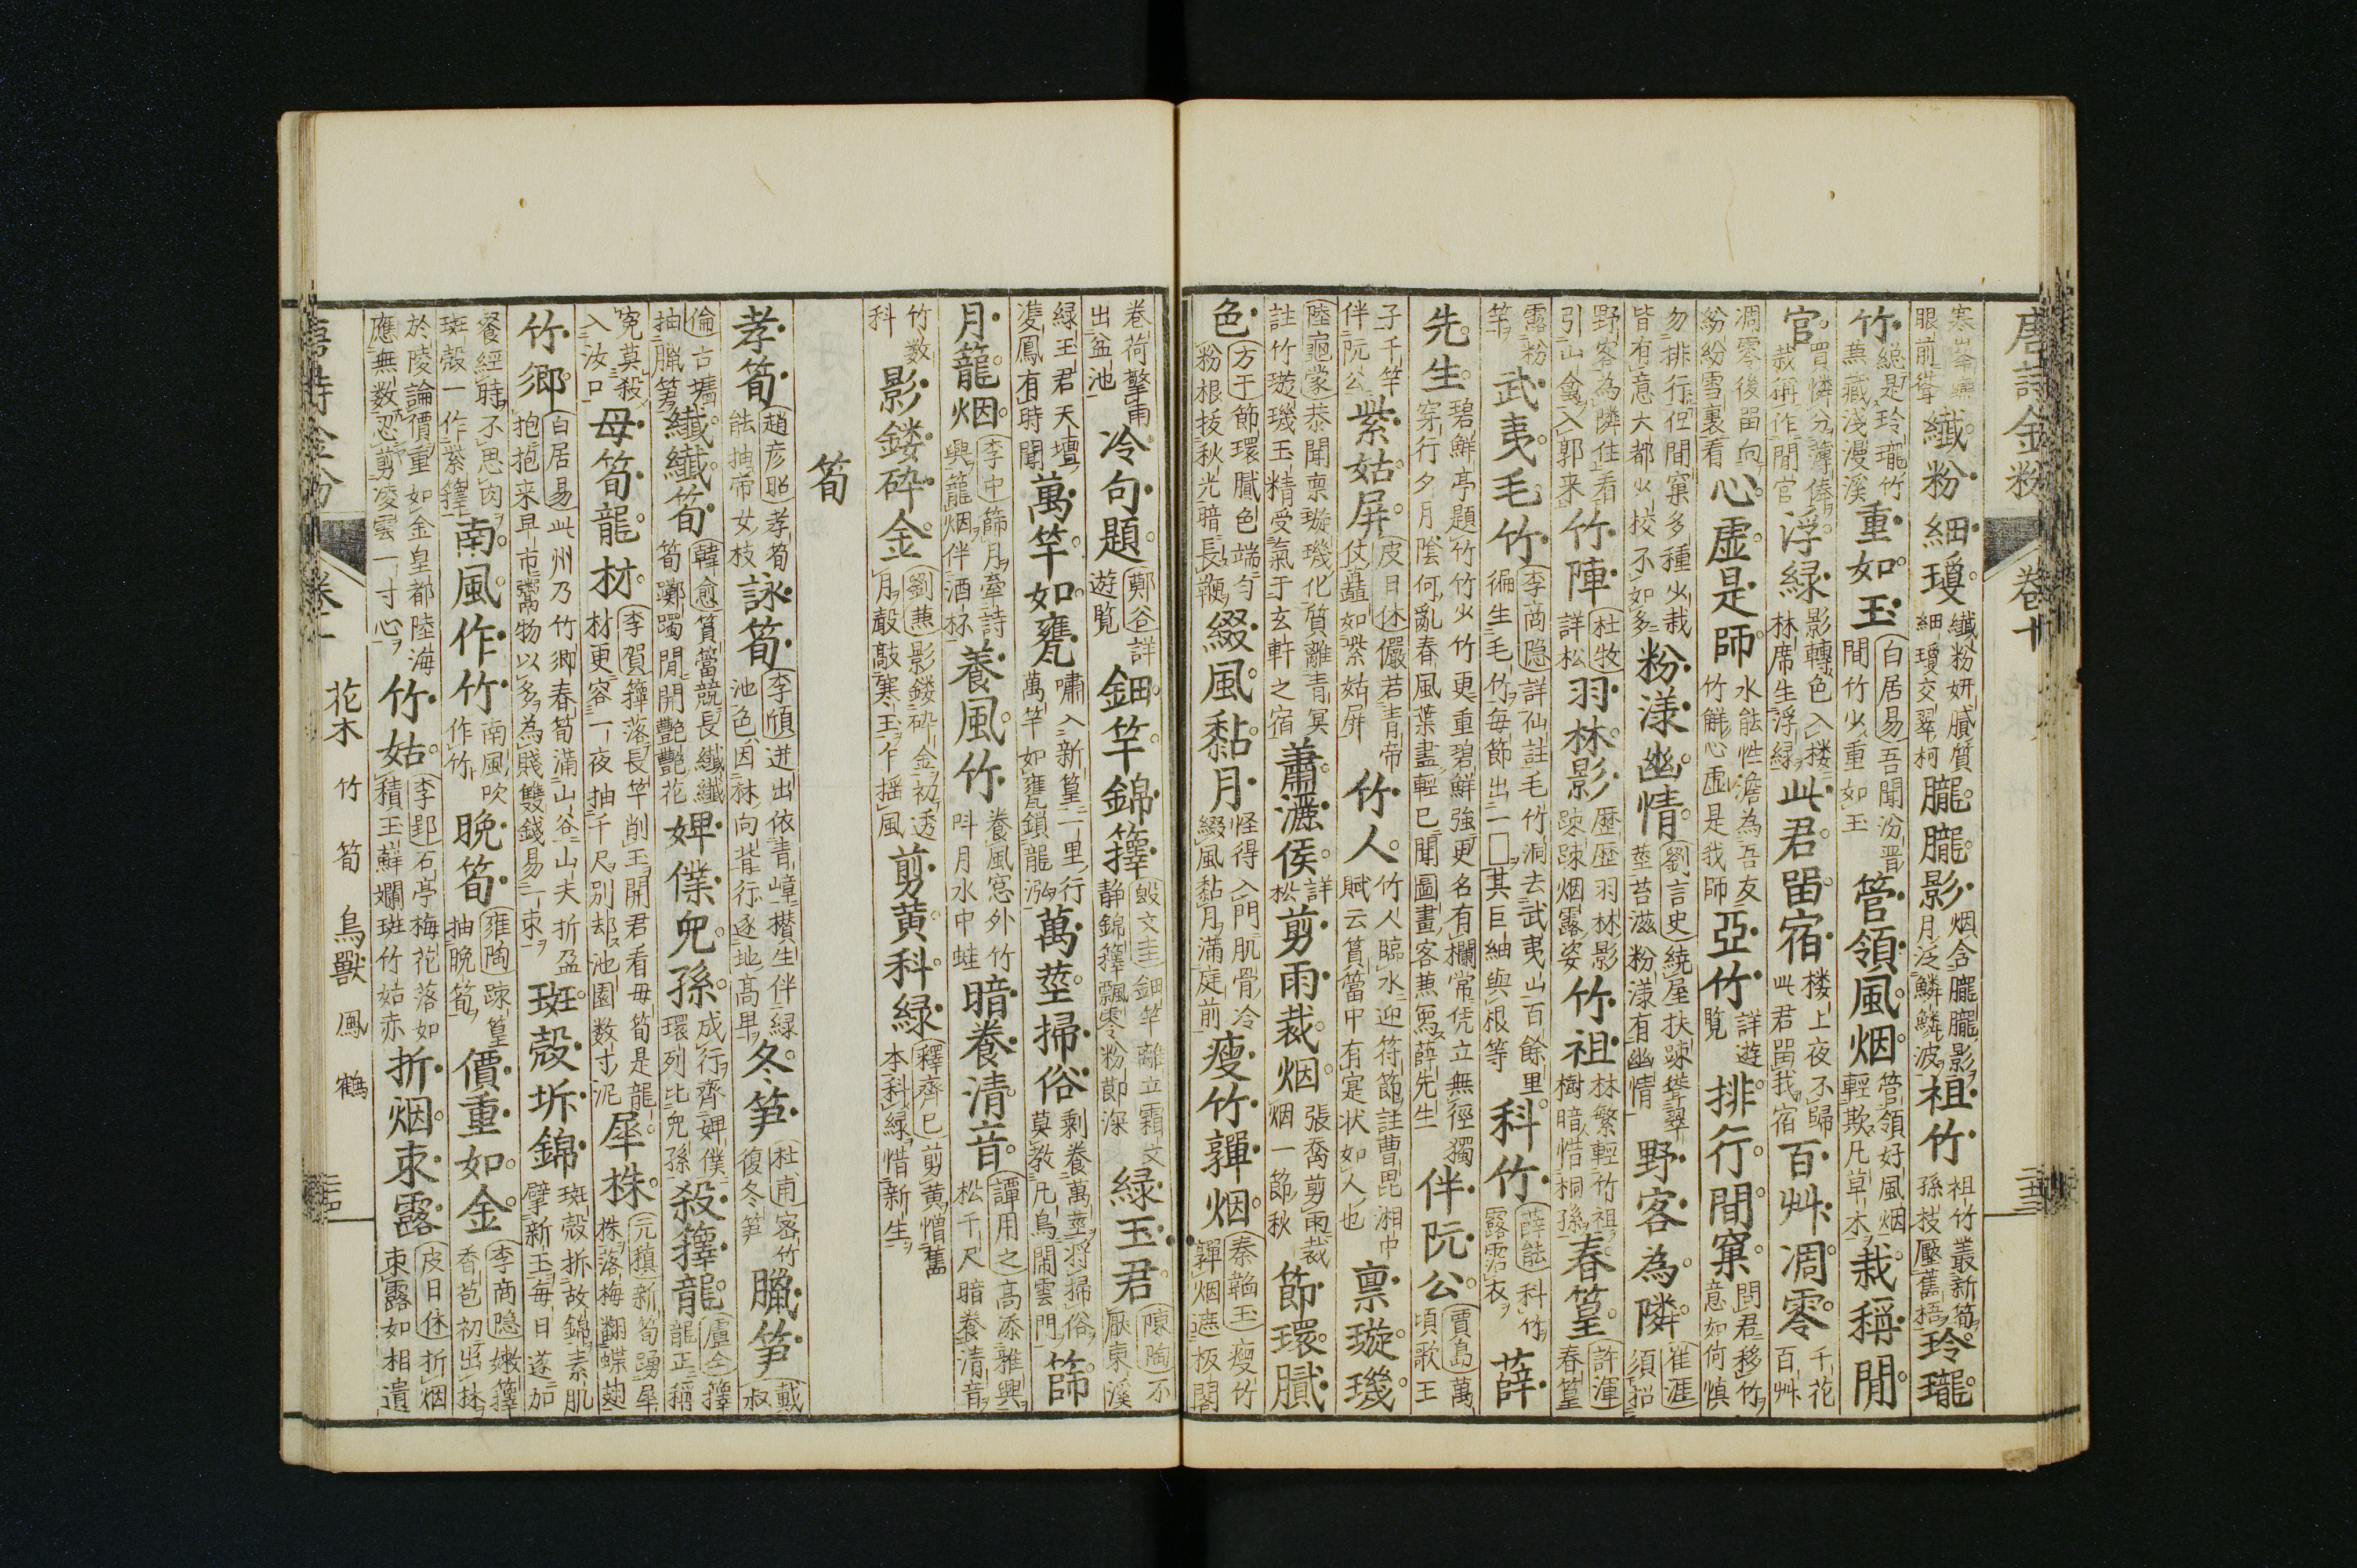 唐詩金粉 卷十
眼前聳 纖粉 細瓊 纖粉妍膩質細瓊交翠柯 朧朧影 烟含朧朧影月泛鱗鱗波 祖竹 祖竹叢新筍孫枝壓舊梧 玲瓏
竹 總是玲瓏竹兼藏淺漫溪 重如玉 白居易 吾聞汾晋間竹少重如玉 管領風烟 管領好風烟輕欺凡草木 栽稱閒
官 買憐分薄俸栽稱作閒官 浮綠 影轉色入楼牀席生浮綠 此君畱宿 楼上夜不歸此君畱我宿 百艸凋零 千花百艸
凋零後畱向紛紛雪裏看 心虛是師 水能性澹為吾友竹觧心虛是我師 亞竹 詳遊覽 排行間窠 問君移竹意如何慎
勿排行但間窠多種少栽皆有意大都少校不如多 粉漾幽情 劉言史 繞屋扶踈聳翠莖苔滋粉漾有幽情 野客為隣 崔涯 須招
野客為隣住看引山禽入郭来 竹陣 杜牧 詳松 羽林影 歷歷羽林影踈踈烟露姿 竹祖 林繁輕竹祖樹暗惜桐孫 春篁 許渾 春篁
露粉竿 武夷毛竹 李商隐 詳仙註毛竹洞去武夷山百餘里徧生毛竹每節出一□其巨細與根等 科竹 薛能 科竹露霑衣 薛
先生 碧鮮亭題竹竹少竹更重碧鮮強更名有欄常凭立無徑獨穿行夕月陰何亂春風葉盡輕已聞圖畫客兼寫薛先生 伴阮公 賈島 萬頃歌王
子千竿伴阮公 紫姑屏 皮日休 儼若青帝仗矗如紫姑屏 竹人 竹人臨水迎符節註曹毘湘中賦云篔簹中有寔状如人也 禀璇璣
陸龜蒙 恭聞禀璇璣化質離青冥註竹璇璣玉精受氣于玄軒之宿 蕭灑侯 詳松 剪雨裁烟 張喬 剪雨裁烟一節秋 節環膩
色 方干 節環膩色端匀粉根拔秋光暗長鞭 綴風黏月 怪得入門肌骨冷綴風黏月滿庭前 瘦竹嚲烟 秦韜玉 瘦竹嚲烟遮板閣
卷荷擎雨出盆池 冷句題 鄭谷 詳遊覧 鈿竿錦籜 殷文圭 鈿竿離立霜文静錦籜飄零粉節深 綠玉君 陳陶 不厭東溪
緑玉君天壇䨇鳳有時聞 萬竿如甕 嘯入新篁一里行萬竿如甕鎖龍泓 萬莖掃俗 剩養萬莖将掃俗莫教凡鳥閙雲門 篩
月籠烟 李中 篩月牽詩興籠烟伴酒杯 養風竹 養風窓外竹呌月水中蛙 暗養清音 譚用之 高添雅興松千尺暗養清音
竹数科 影鏤碎金 劉兼 影鏤碎金初透月聲敲寒玉乍揺風 剪黄科緑 釋齊已 剪黄憎舊本科緑惜新生
筍
孝筍 趙彦昭 孝筍能抽帝女枝 詠筍 李頎 迸出依青嶂攅生伴緑池色因林向背行逐地高卑 冬笋 杜甫 密竹復冬笋 臘笋 戴叔
倫 古壩抽臘笋 纖纖筍 韓愈 篔簹競長纖纖筍躑躅閒開艷艷花 婢僕皃孫 成行齊婢僕環列比皃孫 殺籜龍 盧仝 籜龍正稱
寃莫殺入汝口 母筍龍材 李賀 籜落長竿削玉開君看母筍是龍材更容一夜抽千尺別却池園数寸泥 犀株 元稹 新筍踴犀株落梅翻蝶翅
竹鄉 白居易 此州乃竹鄉春筍滿山谷山夫折盈抱抱来早市鬻物以多為賤雙錢易一束 斑殼坼錦 斑殼拆故錦素肌擘新玉每日遂加
餐經時不思肉 南風作竹 南風吹作竹 晩筍 雍陶 踈篁抽晩筍 價重如金 李商隐 嫩籜香苞初出林
於陵論價重如金皇都陸海應無数忍剪凌雲一寸心 竹姑 李郢 石亭梅花落如積玉蘚斕斑竹姑赤 折烟束露 皮日休 折烟束露如相遺
花木 竹 筍 鳥獸 鳳 鶴